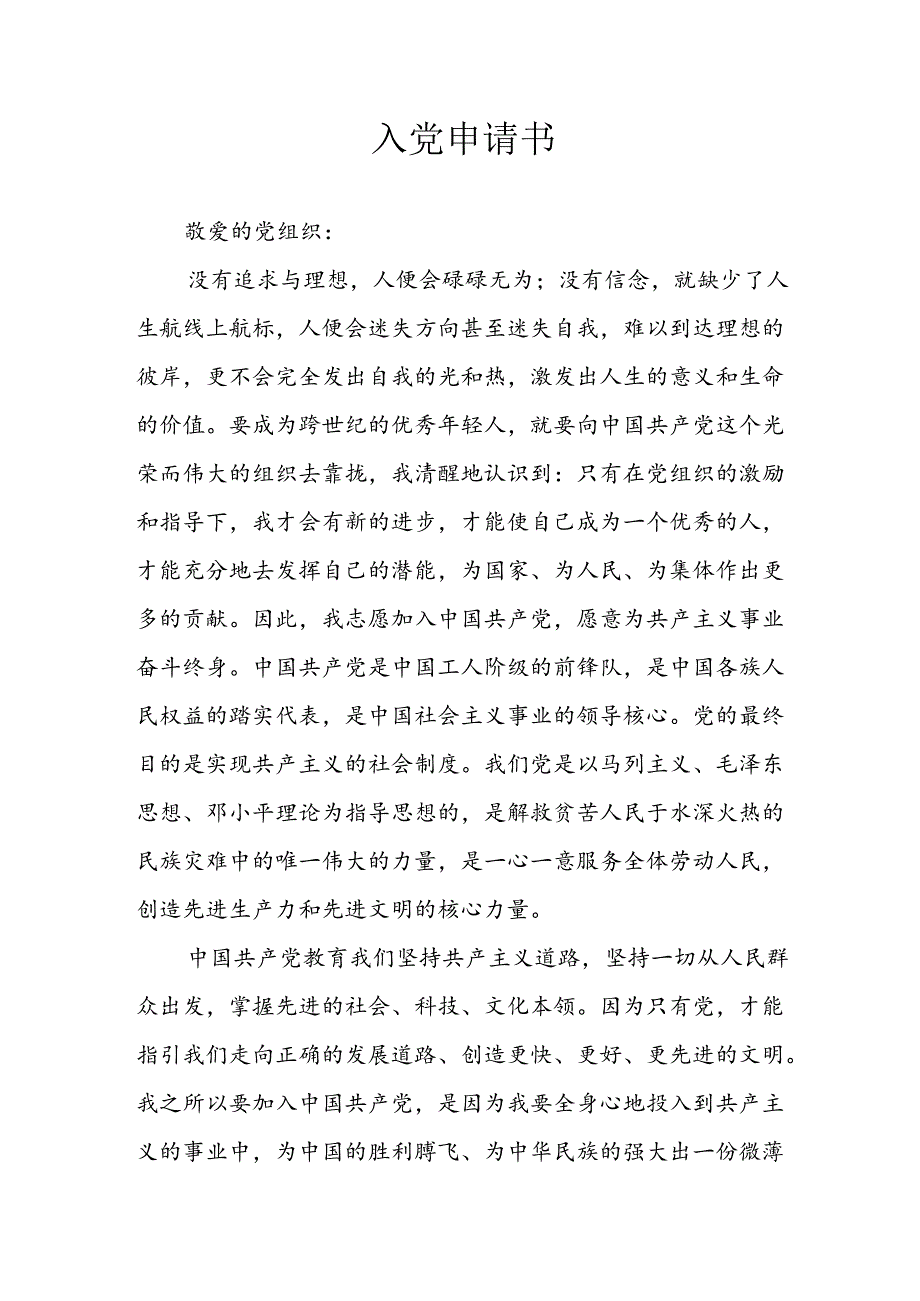 入党申请书
敬爱的党组织：
没有追求与理想，人便会碌碌无为；没有信念，就缺少了人
生航线上航标，人便会迷失方向甚至迷失自我，难以到达理想的
彼岸，更不会完全发出自我的光和热，激发出人生的意义和生命
的价值。要成为跨世纪的优秀年轻人，就要向中国共产党这个光
荣而伟大的组织去靠拢，我清醒地认识到：只有在党组织的激励
和指导下，我才会有新的进步，才能使自己成为一个优秀的人，
才能充分地去发挥自己的潜能，为国家、为人民、为集体作出更
多的贡献。因此，我志愿加入中国共产党，愿意为共产主义事业
奋斗终身。中国共产党是中国工人阶级的前锋队，是中国各族人
民权益的踏实代表，是中国社会主义事业的领导核心。党的最终
目的是实现共产主义的社会制度。我们党是以马列主义、毛泽东
思想、邓小平理论为指导思想的，是解救贫苦人民于水深火热的
民族灾难中的唯一伟大的力量，是一心一意服务全体劳动人民，
创造先进生产力和先进文明的核心力量。
中国共产党教育我们坚持共产主义道路，坚持一切从人民群
众出发，掌握先进的社会、科技、文化本领。因为只有党，才能
指引我们走向正确的发展道路、创造更快、更好、更先进的文明。
我之所以要加入中国共产党，是因为我要全身心地投入到共产主
义的事业中，为中国的胜利腾飞、为中华民族的强大出一份微薄